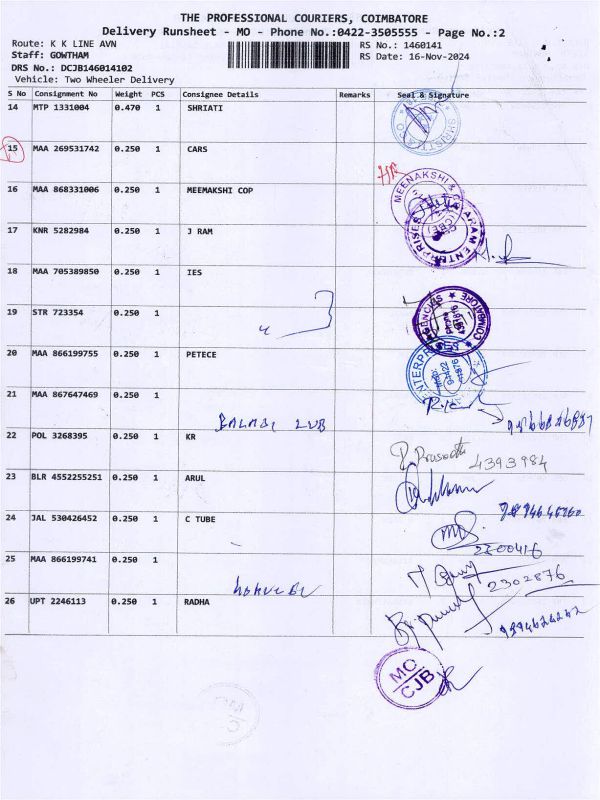 THE PROFESSIONAL COURIERS, COIMBATORE
Delivery Runsheet - MO - Phone No.:0422-3505555 - Page No.:2
Route: K K LINE AVN
RS No.: 1460141
Staff: GOWTHAM
RS Date: 16-Nov-2024
DRS No.: DCJB146014102
Vehicle: Two Wheeler Delivery
S No Consignment No Weight PCS Consignee Details Remarks Seal & Signature
14 MTP 1331004 0.470 1 SHRIATI
15 MAA 269531742 0.250 1 CARS
16 MAA 868331006 0.250 1 MEEMAKSHI COP
MEENAKSHI &
17 KNR 5282984 0.250 1 J RAM
18 MAA 705389850 0.250 1 IES
19 STR 723354 0.250 1
COIMBATORE
20 MAA 866199755 0.250 1 PETECE
21 MAA 867647469 0.250 1
BALAJI LUB
22 POL 3268395 0.250 1 KR
4393984
23 BLR 4552255251 0.250 1 ARUL
24 JAL 530426452 0.250 1 C TUBE
2200416
25 MAA 866199741 0.250 1
2302876
26 UPT 2246113 0.250 1 RADHA
MO
CJB